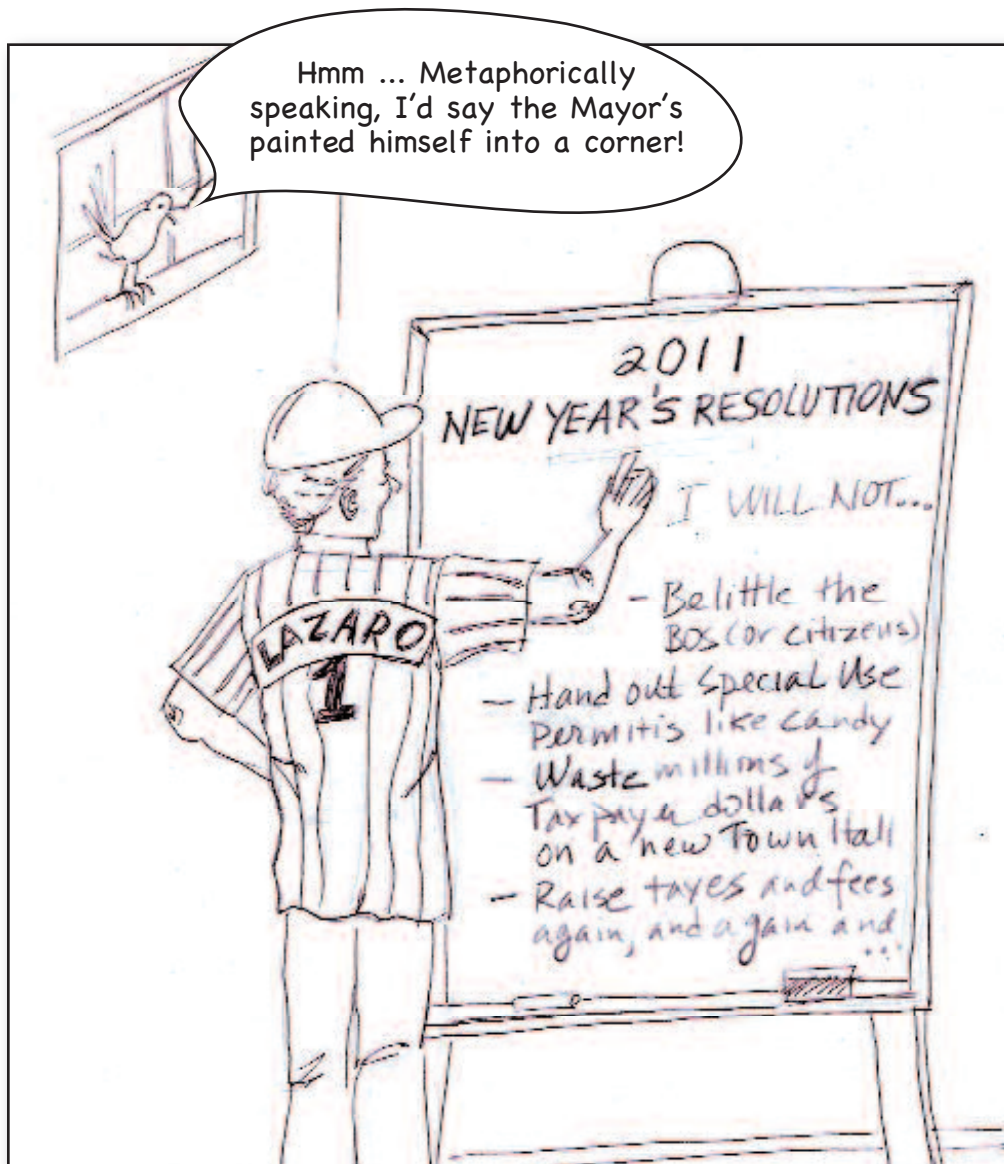 Hmm ... Metaphorically
speaking, I'd say the Mayor's
painted himself into a corner!
2011
NEW YEAR'S RESOLUTIONS
I WILL NOT...
- Belittle the
BOS (or citizens)
- Hand out Special Use
Permitis like candy
- Waste millions of
Taxpayer dollars
on a new Town Hall
- Raise taxes and fees
again, and again and
...
LAZARO
1